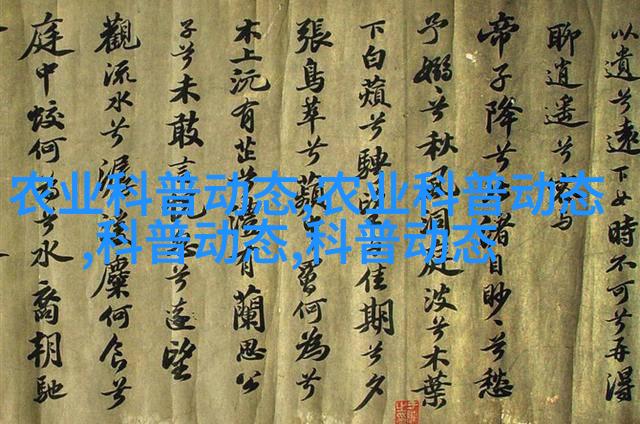 农业科普动态,农业科普动态
,科普动态,科普动态
以遺兮遠下女時不可兮再得
聊逍遙兮與
帝子降兮渚目眇〻兮愁
予嫋〻兮秋風洞庭波兮木葉
下白蘋兮騁望佳期兮夕
張鳥萃兮蘋罾何為兮
木上沅有芷兮澧有蘭思公
子兮未敢言兮遠望
觀流水兮潺湲麋何食兮
庭中蛟何為兮水裔朝馳